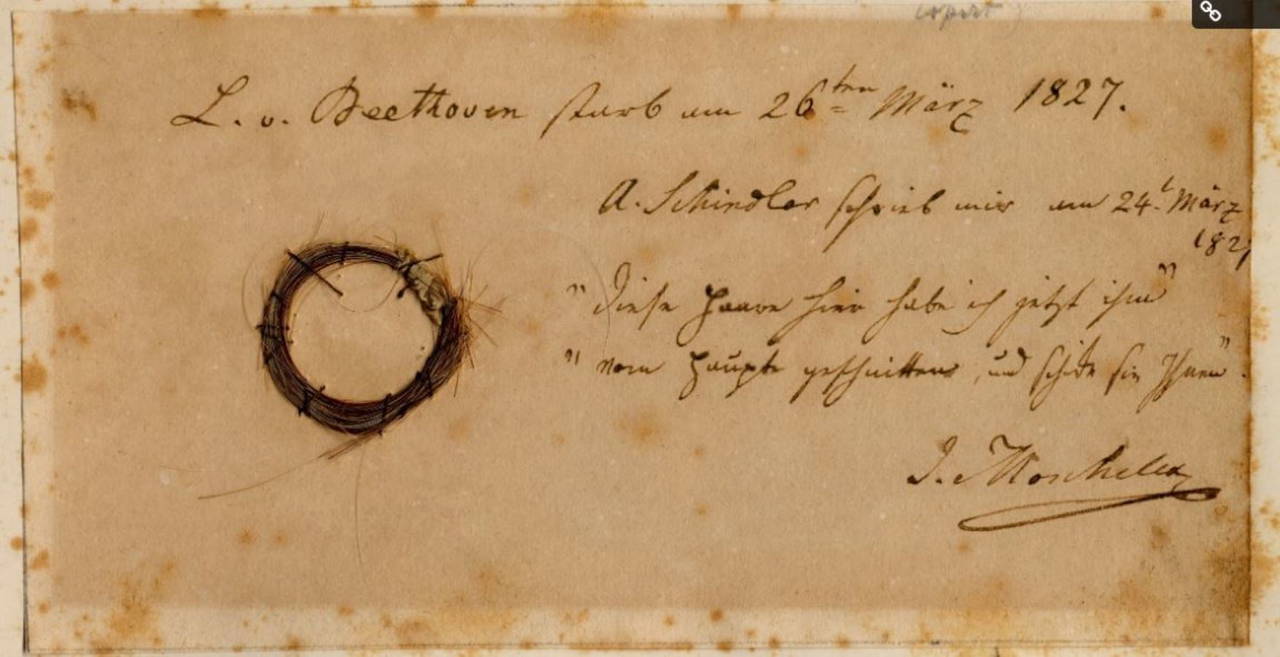 L. v. Beethoven starb am 26ten März 1827.
A. Schindler schrieb mir am 24t. März
1827
"Diese Haare hier habe ich jetzt ihm"
"vom Haupte geschnitten, und schicke sie Ihnen".
J. Moscheles